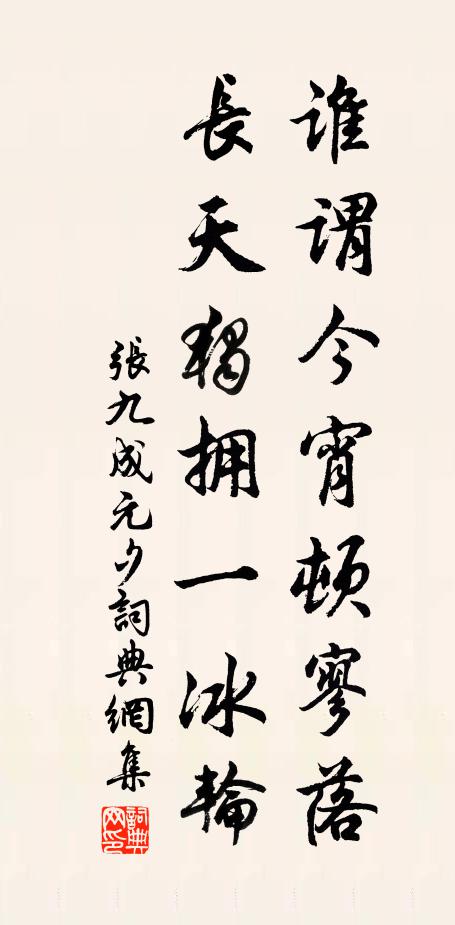 誰謂今宵頓寥落
長天獨拥一冰輪
張九成元夕詞典網集
詞典网印